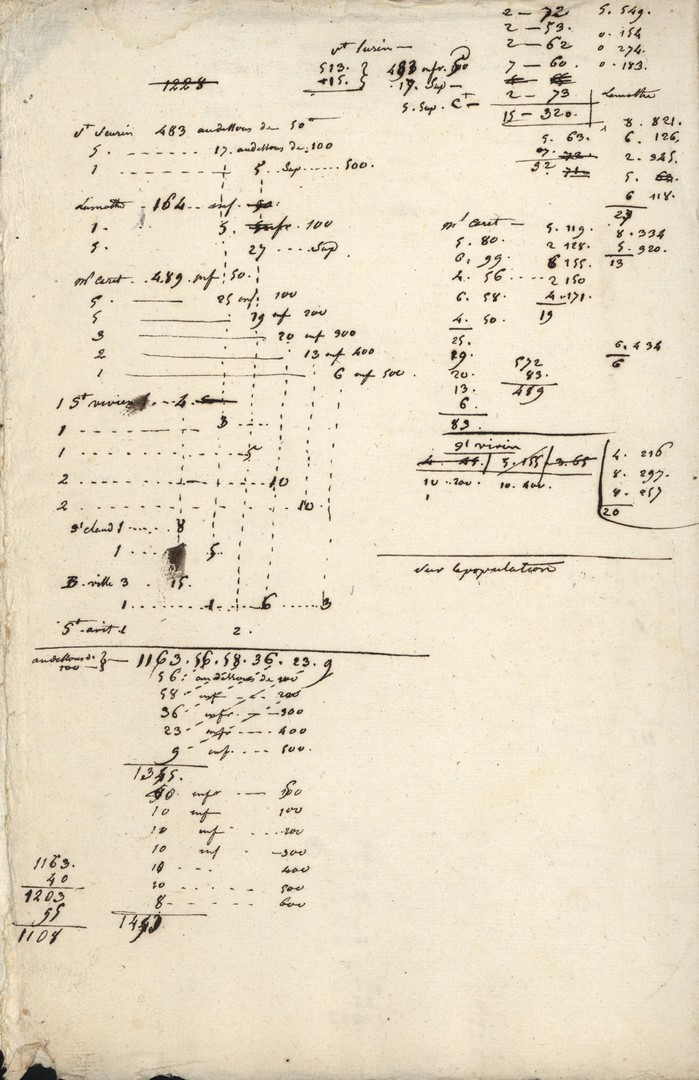 1228
St Seurin —
513. } 483 infr. 50
15. } 17. Sup —
5. Sup. Ct —
2 — 72
2 — 53.
2 — 62
7 — 60.
2 — 73
15 — 320.
5. 63.
92
5. 549.
0. 154
0 274.
0. 183.
Lamothe
8. 821.
6. 126.
2. 345.
5. 63.
6 118.
27
8. 334
5. 920.
13
6. 434
6
St Seurin 483 audessous de 50
5. - - - - - 17. audessous de 100
1 - - - - - 5. Sup ..... 500.
Lamothe — 164 — inf
1. 5. infr. 100
5. 27 .... Sup
Mt Caret — 489. inf 50.
5. —— 25 inf. 100
5 —— 19 inf 200
3 —— 20 inf 300
2 —— 13 inf 400
1 —— 6 inf 500
1 St vivien - - 4
1 - - - - 3
1 - - - -
2 - - - - 10
2 - - - - 10
St claud 1 - - - 8
1 - - - 5
B. ville 3 . . 15.
1 - - - 1 - - 6 - - - 3
St avit 1 2.
Mt Caret —
5. 80.
6. 99
4. 56 ----
6. 58.
4. 50.
25.
19.
20.
13.
6.
83.
5. 119.
2 128.
6 155.
2 150
4. 171.
19
572
83.
489
St vivien
4. 45. | 5. 155 | 3. 65
10 . 200. 10. 400.
1
4. 216
8. 297.
8. 257
20
Sur la population
audessous de
100 } — 1163. 56. 58. 36. 23. 9
56. audessous de 100
58 inf - - 200
36 infr. - - 300
23 infr - - 400
9 inf. - - - 500.
1345.
40. infr — 50
10 inf 100
10 inf . - - 200
10 inf - 300
10 - - - 400
10 - - - 500
8 - - - 600
1443
1163.
40
1203
55
1108